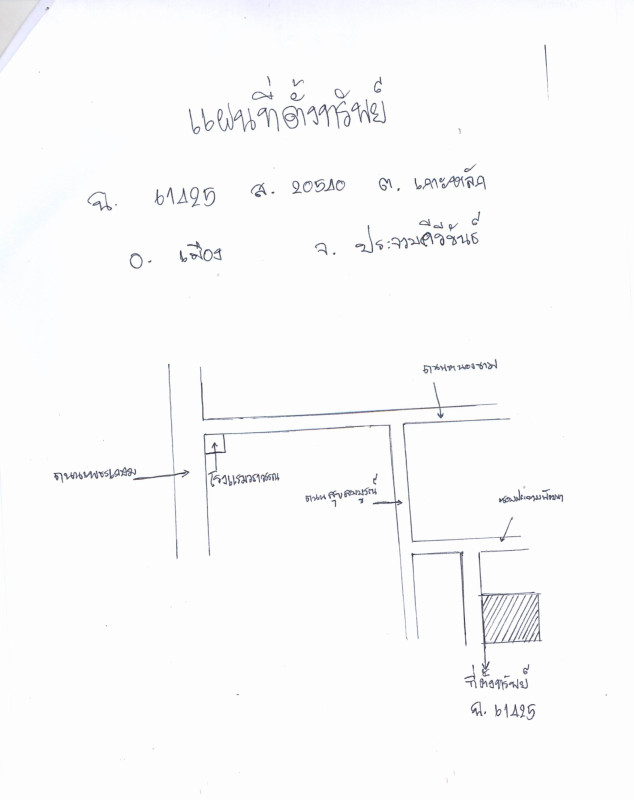 แผนที่ตั้งทรัพย์
ฉ. 61425 ส. 20540 ต. เกาะหลัก
อ. เมือง จ. ประจวบคีรีขันธ์
ถนนหนองขาม
ถนนเพชรเกษม
โรงแรมวราภรณ์
ถนนสุขสมบูรณ์
ที่ตั้งทรัพย์
ฉ. 61425